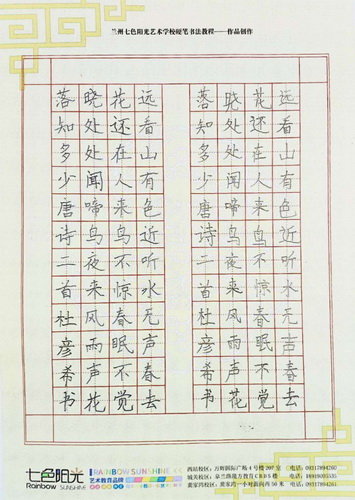 兰州七色阳光艺术学校硬笔书法教程——作品创作
远看山有色近听水无声春去
花还在人来鸟不惊春眠不觉
晓处处闻啼鸟夜来风雨声花
落知多少唐诗二首杜彦希书
远看山有色近听水无声春去
花还在人来鸟不惊春眠不觉
晓处处闻啼鸟夜来风雨声花
落知多少唐诗二首杜彦希书
七色阳光
Rainbow SUNSHINE
RAINBOW SUNSHINE <<
艺术教育品牌
西站校区：万辉国际广场4号楼207室 电话：09317894260
城关校区： 电话：
电话：